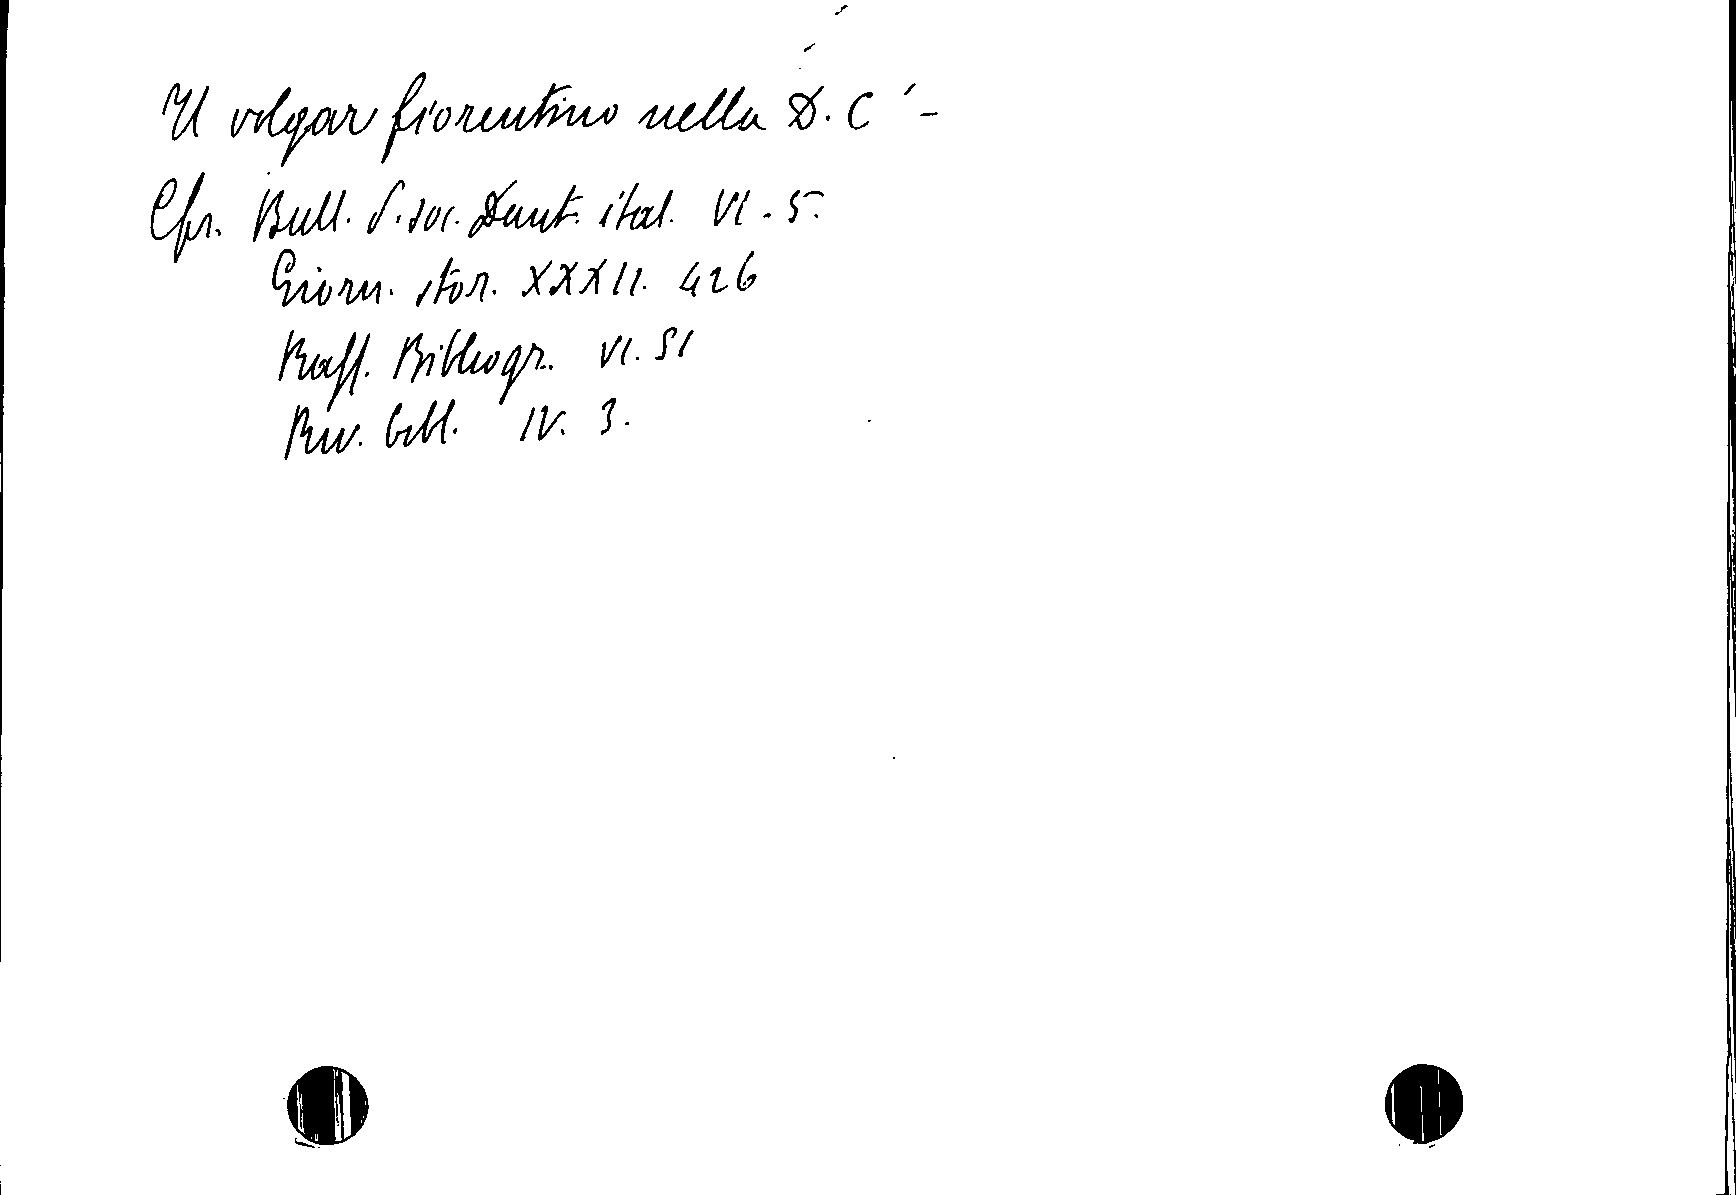 Il volgar fiorentino nella D. C -
Cfr. Bull. d. soc. Dant. ital. VI. 5.
Giorn. stor. XXXII. 426
Rass. Bibliogr. VI. 51
Riv. bibl. IV. 3.